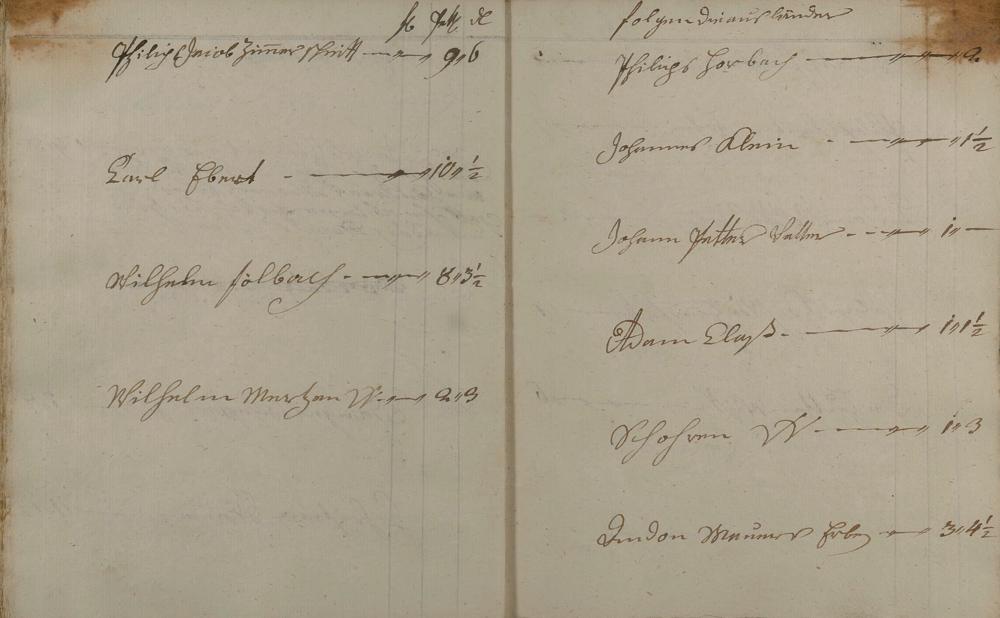 Philips Jacob Zimer schnitt — „ 9„6
Carl Ebert - — „ 10„ ½
Wilhelm solbach - — „ 8„3½
Wilhelm Mertzen W. — „ 2„3
folgen die ausländer
Philips Horbach — „ „ 2
Johannes Klein - — „ „ 1½
Johann Petter - — „ 1„ —
Adam Clasß - — „ 1„1½
Schohren W - — „ 1„3
Andon Maurers Erben — „ 3„4½